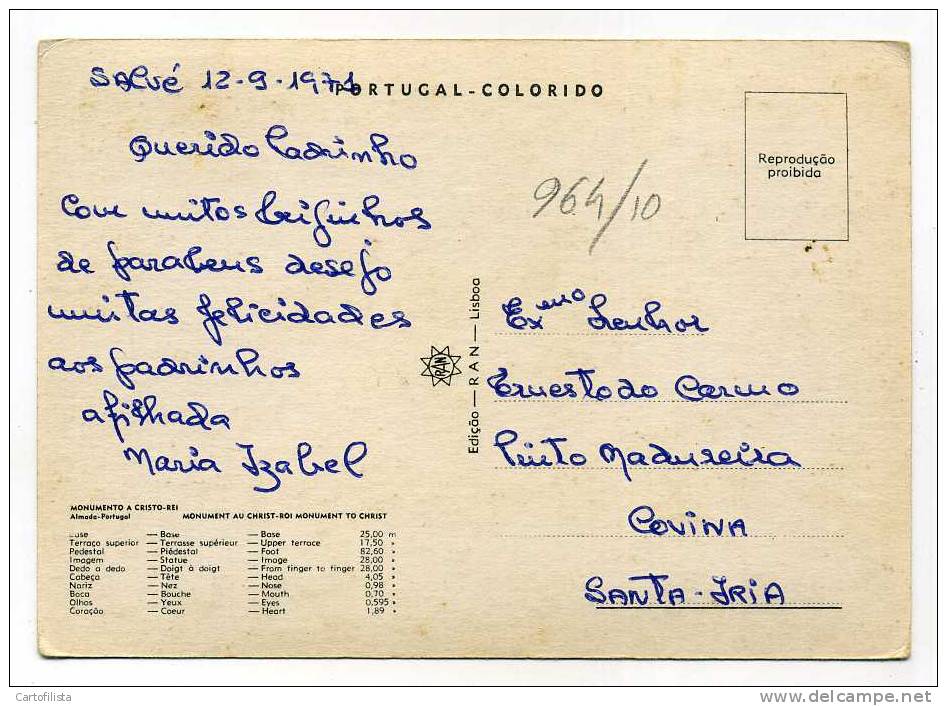 SALVÉ 12-9-1971
PORTUGAL-COLORIDO
Querido Padrinho
Com muitos beijinhos
de parabens desejo
muitas felicidades
aos padrinhos
a filhada
Maria Izabel
MONUMENTO A CRISTO-REI
Almada-Portugal MONUMENT AU CHRIST-ROI MONUMENT TO CHRIST
Base — Base — Base 25,00 m
Terraço superior — Terrasse supérieur — Upper terrace 17,50 »
Pedestal — Piédestal — Foot 82,60 »
Imagem — Statue — Image 28,00 »
Dedo a dedo — Doigt à doigt — From finger to finger 28,00 »
Cabeça — Tête — Head 4,05 »
Nariz — Nez — Nose 0,98 »
Boca — Bouche — Mouth 0,70 »
Olhos — Yeux — Eyes 0,595 »
Coração — Coeur — Heart 1,89 »
Edição — RAN — Lisboa
RAN
964/10
Reprodução
proibida
Exmo Senhor
Ernesto do Carmo
Pinto Madureira
COVINA
SANTA-IRIA
Cartofilista
www.delcampe.net